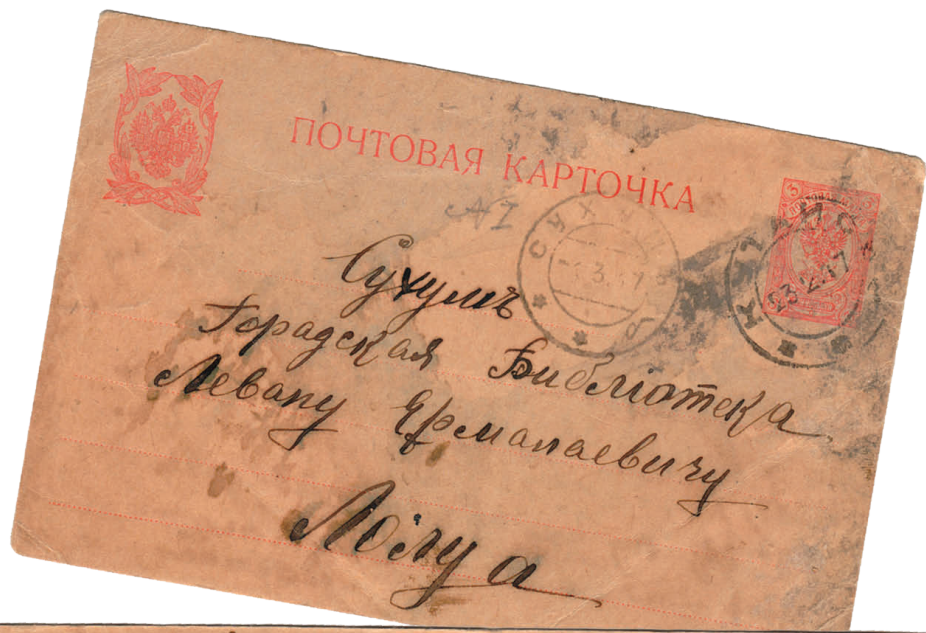 ПОЧТОВАЯ КАРТОЧКА
Сухумъ
Городская Библіотека
Левану Ермалаевичу
Лолуа
23.2.17